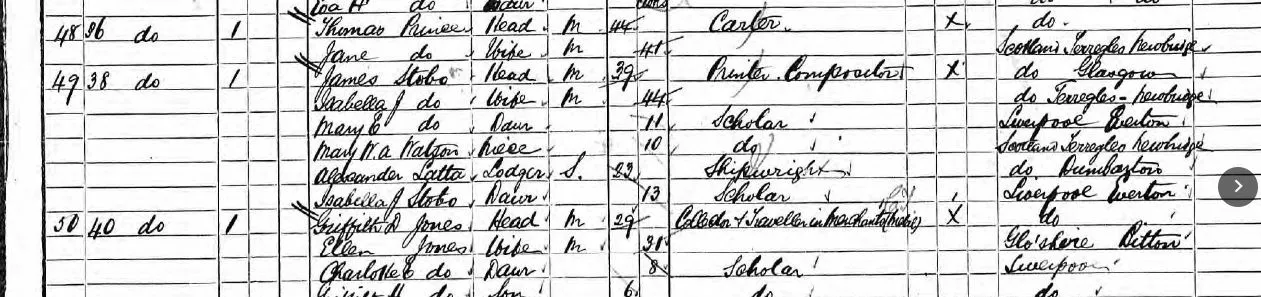 Eva H do Daur
48 36 do 1 Thomas Prince Head M 44 Carter X do
Jane do Wife M 41 Scotland Terregles Newbridge
49 38 do 1 James Stobo Head M 39 Printer Compositor X do Glasgow
Isabella J do Wife M 44 do Terregles - Newbridge
Mary E do Daur 11 Scholar Liverpool Everton
Mary W.A Watson Niece 10 do Scotland Terregles Newbridge
Alexander Latta Lodger S. 23 Shipwright do Dumbarton
Isabella J Stobo Daur 13 Scholar Liverpool Everton
50 40 do 1 Griffith D Jones Head M 29 Collector & Traveller in X do
Ellen Jones Wife M 31 Glo'shire Bitton
Charlotte E do Daur 8 Scholar Liverpool
H do Son 6 do do